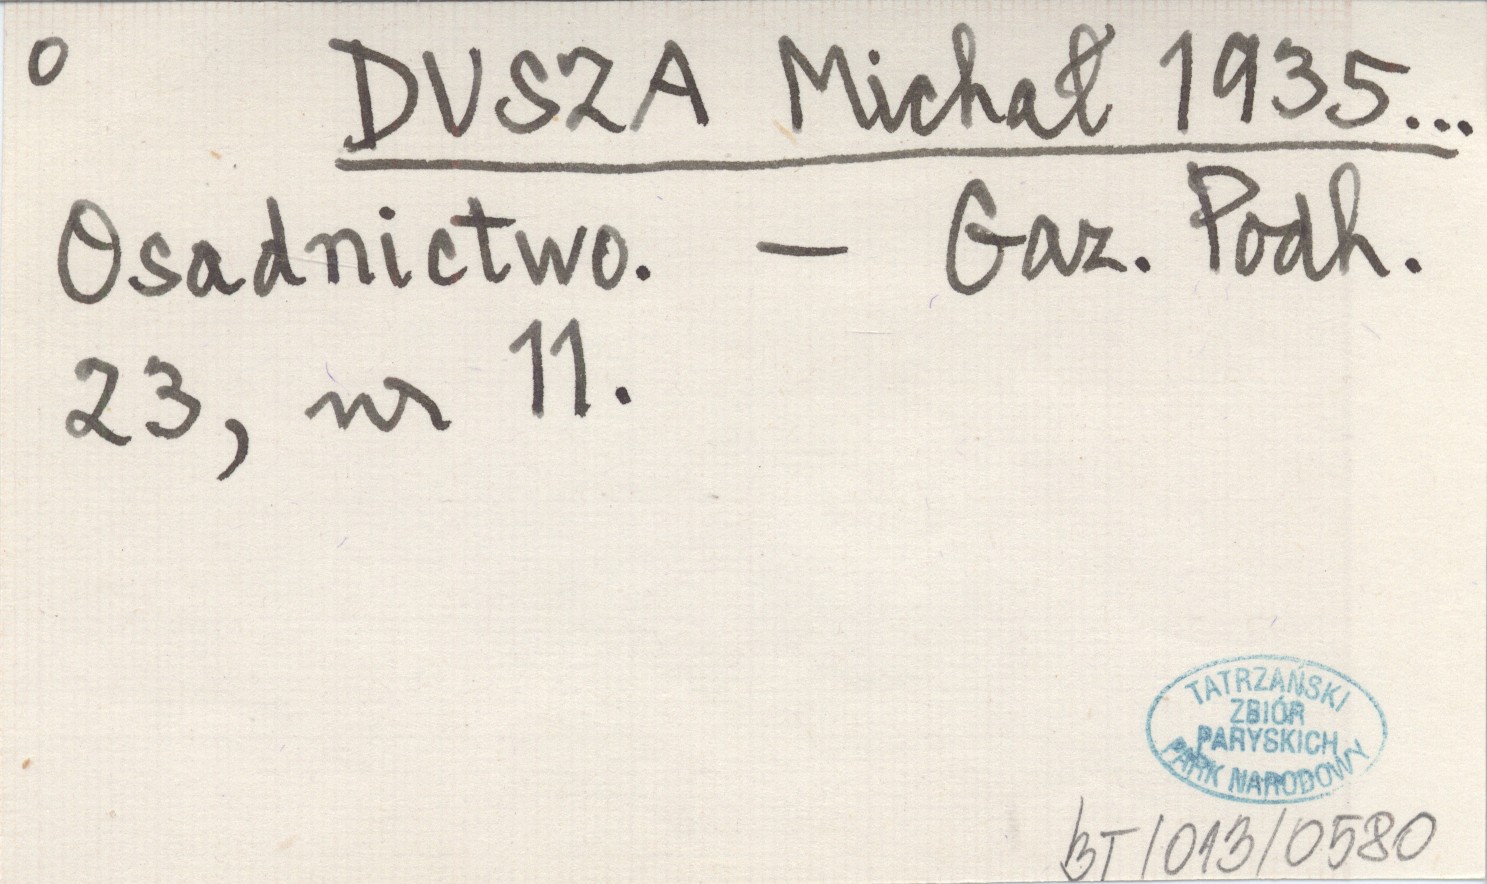 o DUSZA Michał 1935...
Osadnictwo. — Gaz. Podh.
23, nr 11.
TATRZAŃSKI
ZBIÓR
PARYSKICH
PARK NARODOWY
BT/013/0580